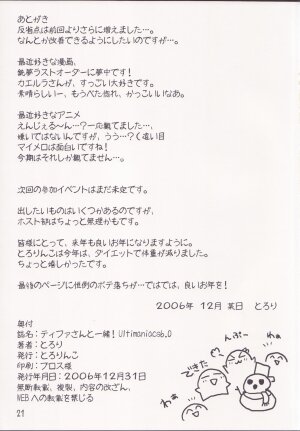 あとがき
反省点は前回よりさらに増えました…。
なんとか改善できるようにしたいのですが…。
最近好きな漫画、
艶夢ラストオーダーに夢中です！
カエルラさんが、すっごい大好きです。
素晴らしいー、もうべた惚れ、かっこいいなあ。
最近好きなアニメ
えんじぇる～ん…？一応観てました…、
嫌いではないんですが、うぅ…？(遠い目
マイメロは面白いですね！
今期はそれしか観てません…。
次回の参加イベントはまだ未定です。
出したいものはいくつかあるのですが、
ホスト朝はちょっと無理かもです。
皆様にとって、来年も良いお年になりますように。
とろりんこは今年は、ダイエットで体重が減りました。
ちょっと嬉しかったです。
最後のページに恒例のボテ落ちが…ではでは、良いお年を！
2006年 12月 某日 とろり
奥付
誌名：ティファさんと一緒！Ultimaniacs6.0
著者：とろり
発行：とろりんこ
印刷：プロス様
発行年月日：2006年12月31日
無断転載、複製、内容の改ざん、
WEBへの転載を禁じる
できた
んぷー
21